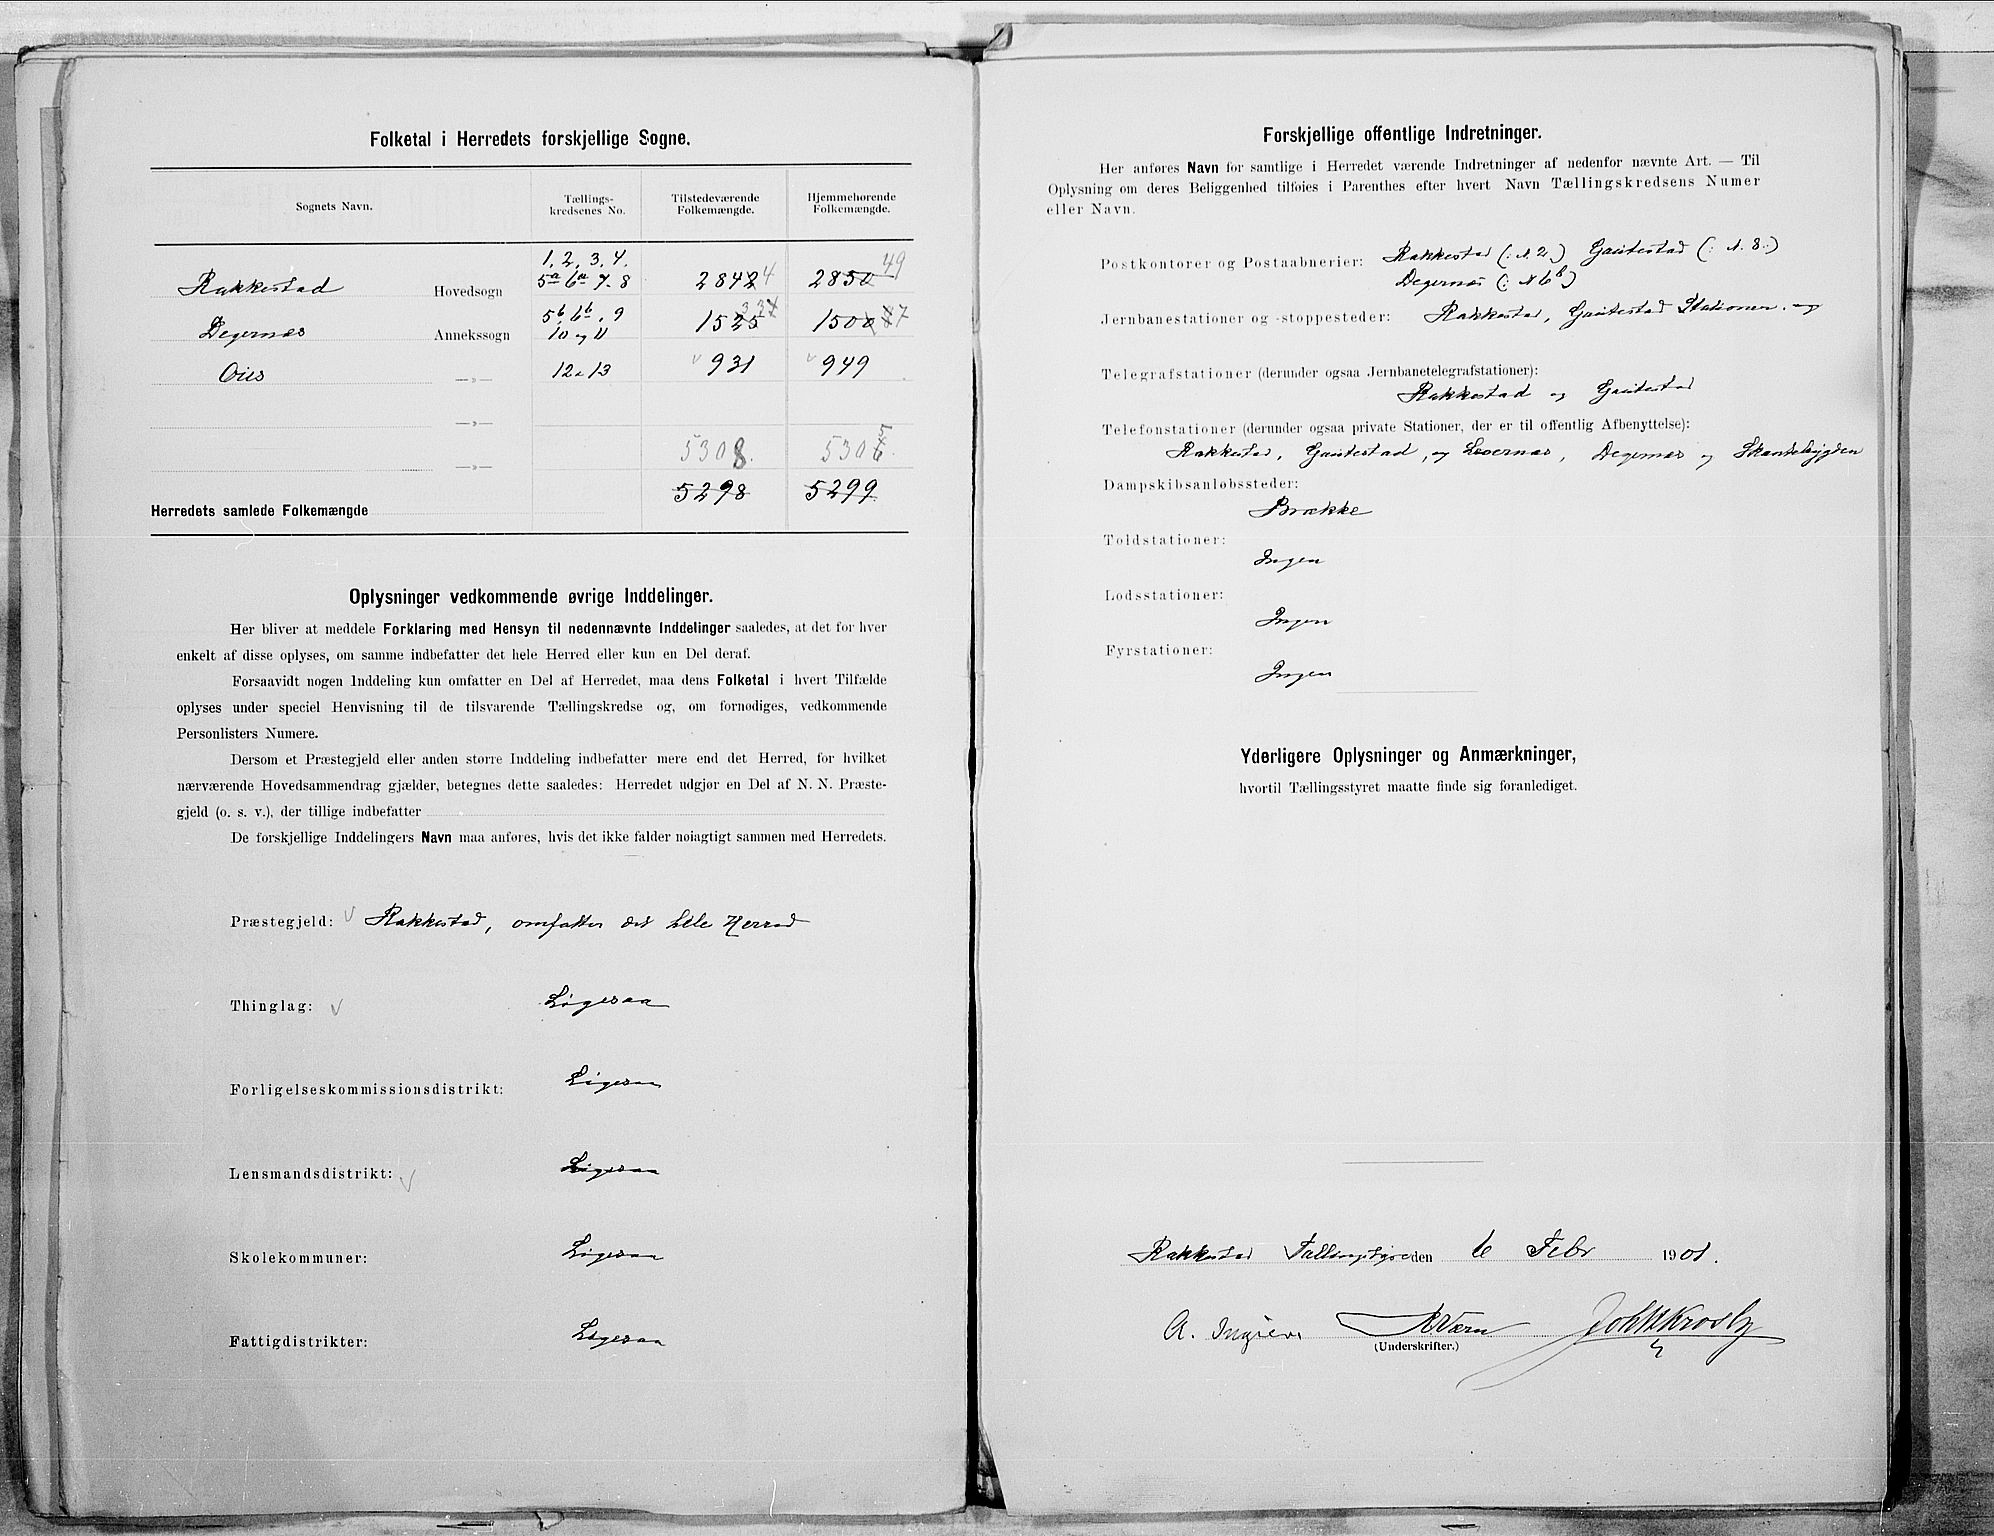 Folketal i Herredets forskjellige Sogne.
Sognets Navn. Tællings-kredsenes No. Tilstedeværende Folkemængde. Hjemmehørende Folkemængde.
1, 2, 3, 4. 49
Rakkestad Hovedsogn 5a 6a 7-8 28424 2850
Degernæs Annekssogn 5b, 6b, 9 10 og 11 1525 1500
Öies —»— 12 - 13 931 949
—»—
—»— 5308. 5305
Herredets samlede Folkemængde 5298 5299
Oplysninger vedkommende øvrige Inddelinger.
Her bliver at meddele Forklaring med Hensyn til nedennævnte Inddelinger saaledes, at det for hver
enkelt af disse oplyses, om samme indbefatter det hele Herred eller kun en Del deraf.
Forsaavidt nogen Inddeling kun omfatter en Del af Herredet, maa dens Folketal i hvert Tilfælde
oplyses under speciel Henvisning til de tilsvarende Tællingskredse og, om fornødiges, vedkommende
Personlisters Numere.
Dersom et Præstegjeld eller anden større Inddeling indbefatter mere end det Herred, for hvilket
nærværende Hovedsammendrag gjælder, betegnes dette saaledes: Herredet udgjør en Del af N. N. Præste-
gjeld (o. s. v.), der tillige indbefatter
De forskjellige Inddelingers Navn maa anføres, hvis det ikke falder nøiagtigt sammen med Herredets.
Præstegjeld: Rakkestad, omfatter det hele Herred
Thinglag: Ligesaa
Forligelseskommissionsdistrikt: Ligesaa
Lensmandsdistrikt: Ligesaa
Skolekommuner: Ligesaa
Fattigdistrikter: Ligesaa
Forskjellige offentlige Indretninger.
Her anføres Navn for samtlige i Herredet værende Indretninger af nedenfor nævnte Art. — Til
Oplysning om deres Beliggenhed tilføies i Parenthes efter hvert Navn Tællingskredsens Numer
eller Navn.
Postkontorer og Postaabnerier: Rakkestad (: N. 2.) Gautestad (: N. 8.)
Degernæs (: N 6b)
Jernbanestationer og -stoppesteder: Rakkestad, Gautestad Stationer. og
Telegrafstationer (derunder ogsaa Jernbanetelegrafstationer):
Rakkestad og Gautestad
Telefonstationer (derunder ogsaa private Stationer, der er til offentlig Afbenyttelse):
Rakkestad, Gautestad, og Levernæs, Degernæs og Skautebygden
Dampskibsanløbssteder:
Brække
Toldstationer:
Ingen
Lodsstationer:
Ingen
Fyrstationer:
Ingen
Yderligere Oplysninger og Anmærkninger,
hvortil Tællingsstyret maatte finde sig foranlediget.
Rakkestad Tællingsstyre den 6 Febr 1901.
A. Ingier
(Underskrifter.)